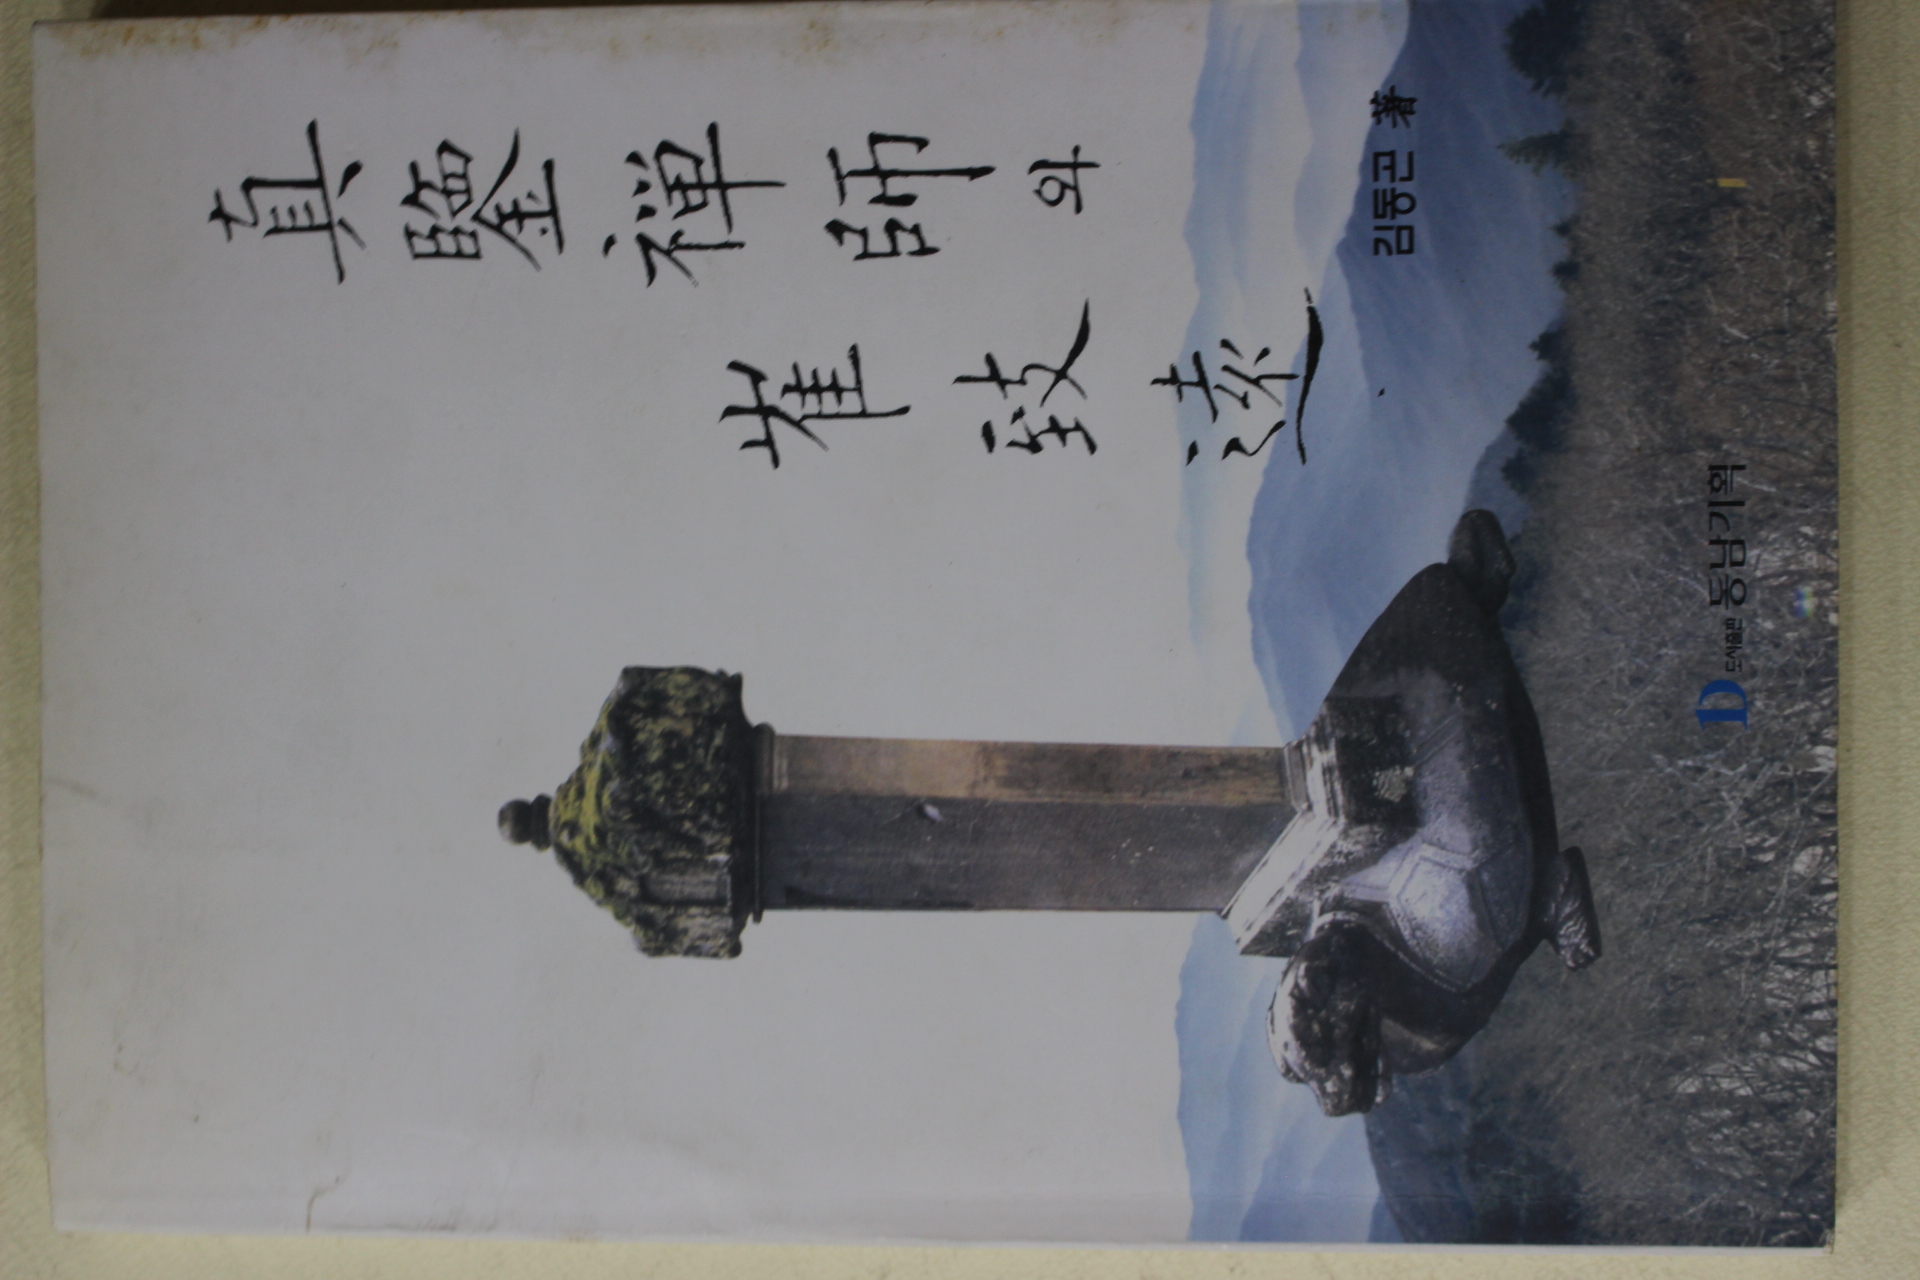 眞鑒禪師와
崔致遠
김동곤 著
도서출판 동남기획